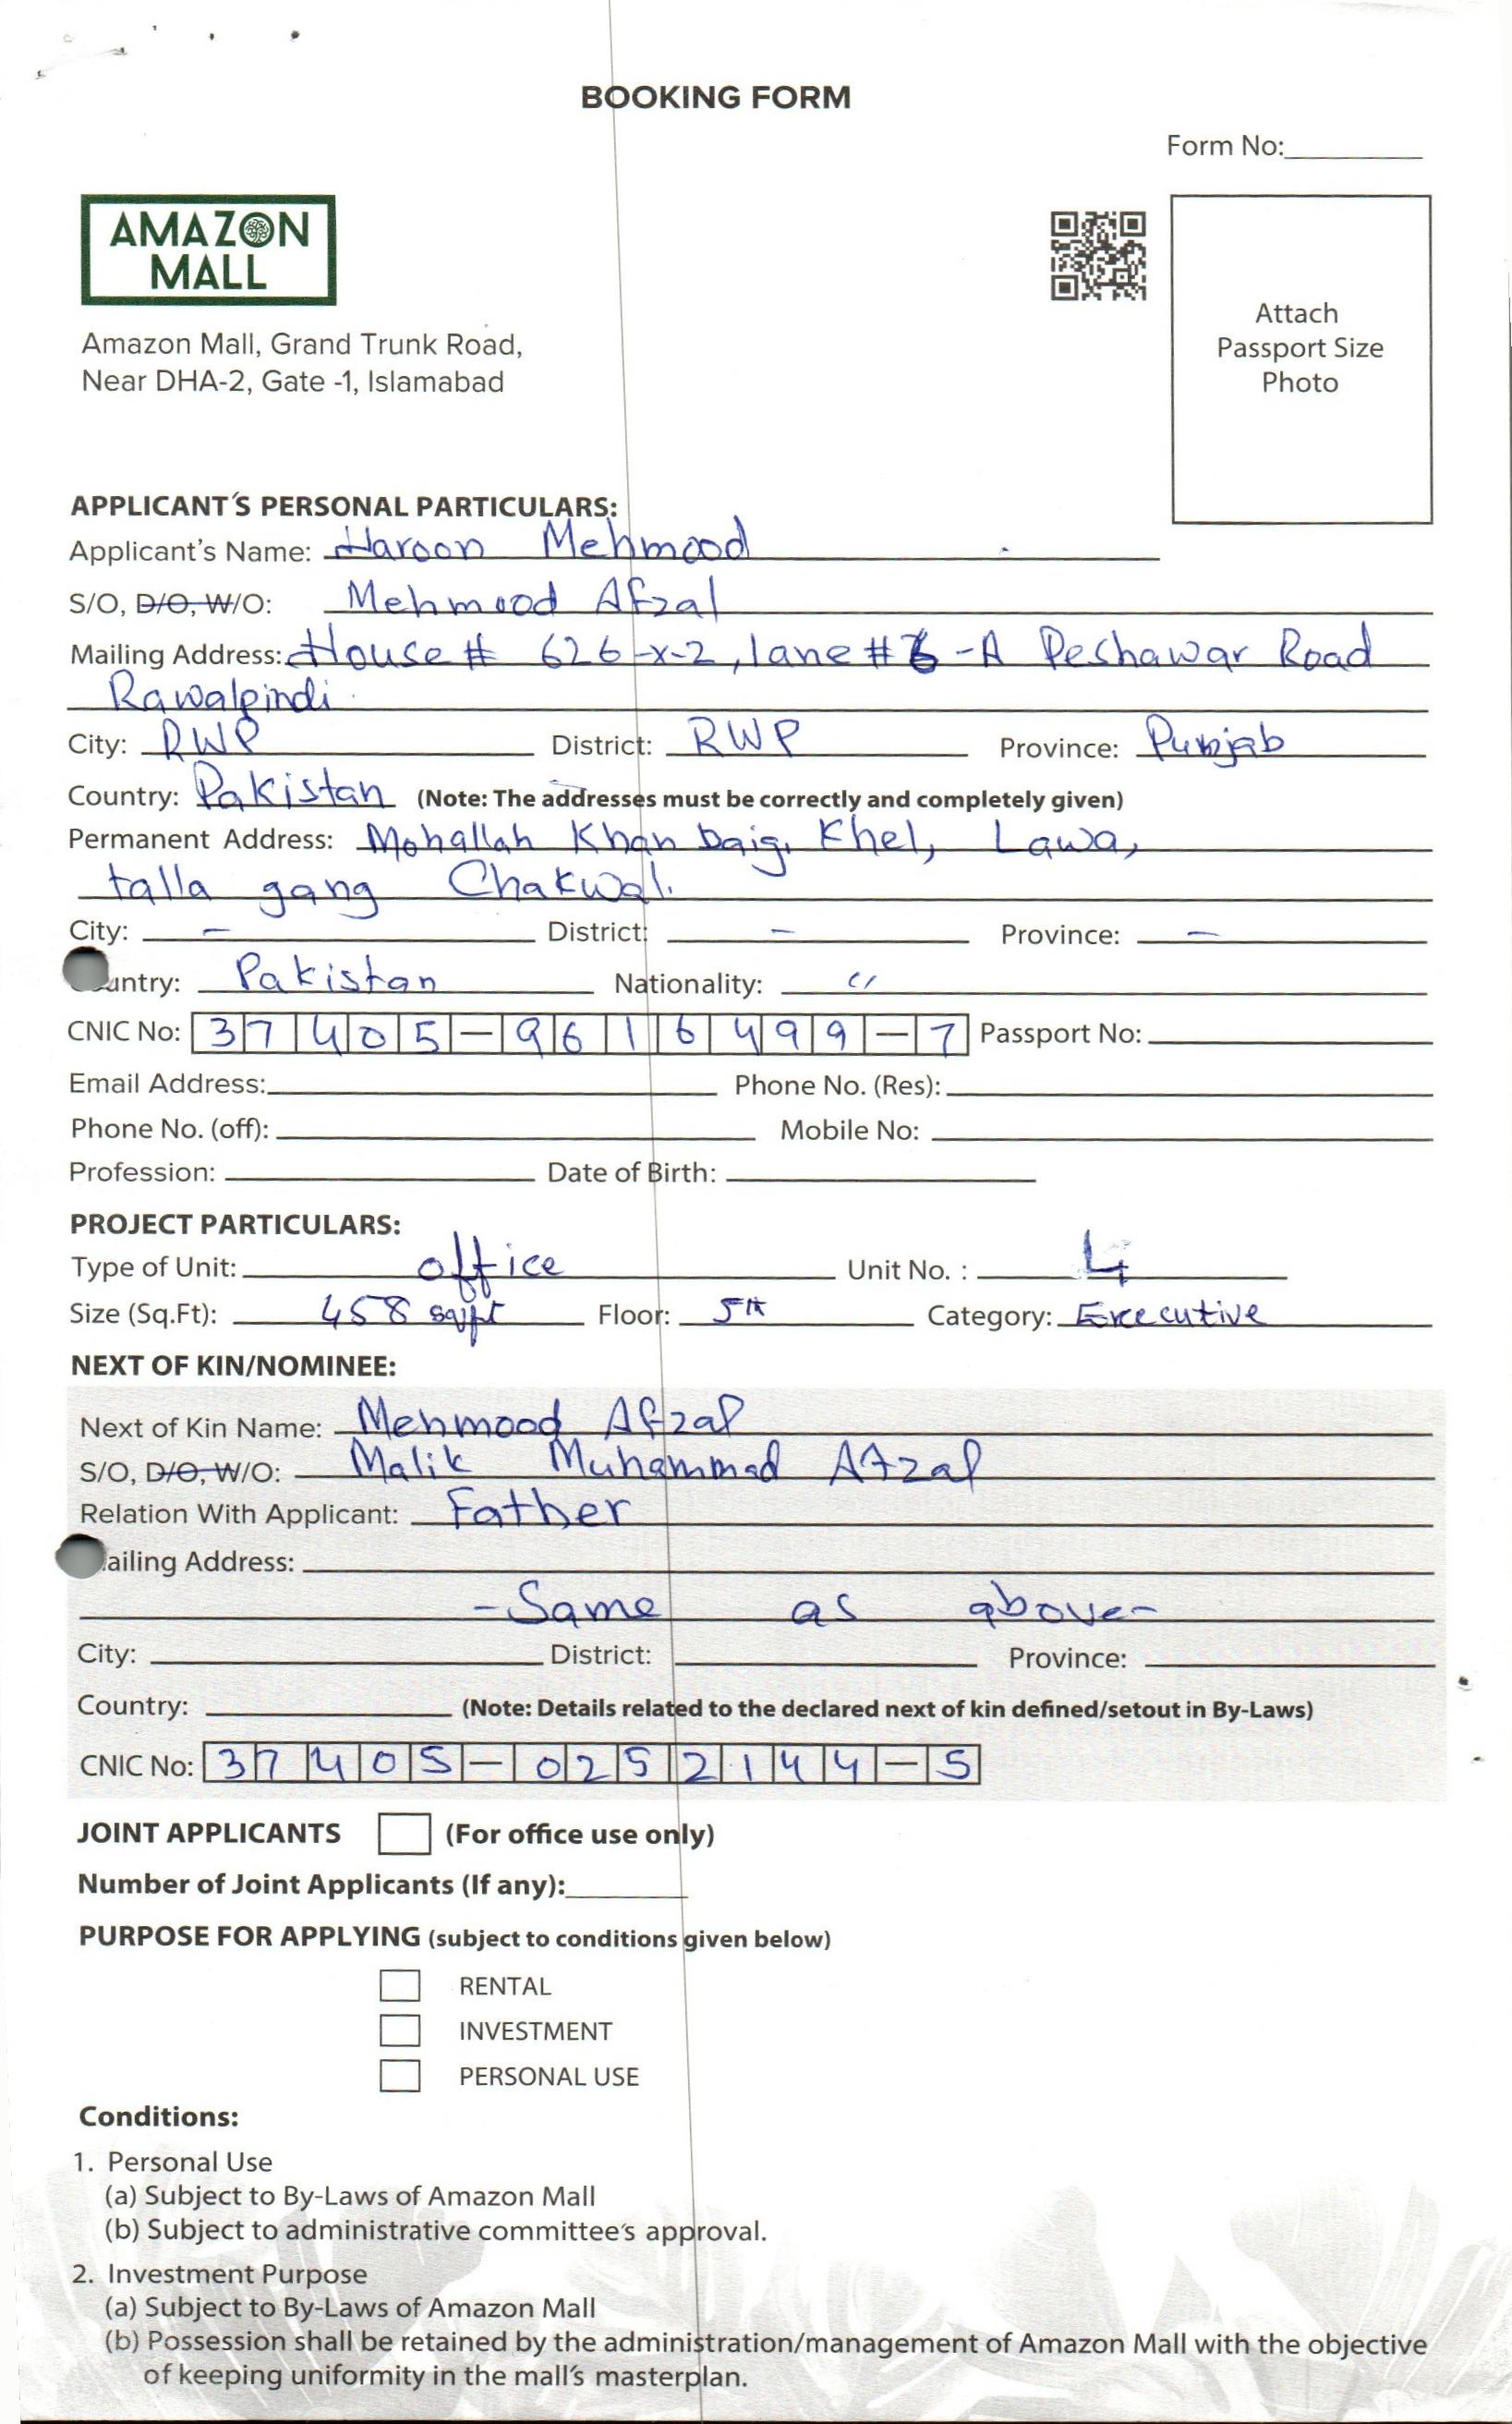 BOOKING FORM
Form No:
AMAZON
MALL
Attach
Passport Size
Photo
Amazon Mall, Grand Trunk Road,
Near DHA-2, Gate -1, Islamabad
APPLICANT'S PERSONAL PARTICULARS:
Applicant's Name: Haroon Mehmood
S/O, D/O, W/O: Mehmood Afzal
Mailing Address: House # 626-x-2, lane # 6-A Peshawar Road
Rawalpindi
City: RWP District: RWP Province: Punjab
Country: Pakistan (Note: The addresses must be correctly and completely given)
Permanent Address: Mohallah Khan baig, Khel, Lawa,
talla gang Chakwal.
City: - District: - Province: -
untry: Pakistan Nationality: "
CNIC No: 37405-9616499-7 Passport No:
Email Address: Phone No. (Res):
Phone No. (off): Mobile No:
Profession: Date of Birth:
PROJECT PARTICULARS:
Type of Unit: office Unit No. : 4
Size (Sq.Ft): 458 sqft Floor: 5th Category: Executive
NEXT OF KIN/NOMINEE:
Next of Kin Name: Mehmood Afzal
S/O, D/O, W/O: Malik Muhammad Afzal
Relation With Applicant: Father
ailing Address:
-Same as above-
City: District: Province:
Country: (Note: Details related to the declared next of kin defined/setout in By-Laws)
CNIC No: 37405-0252144-5
JOINT APPLICANTS (For office use only)
Number of Joint Applicants (If any):
PURPOSE FOR APPLYING (subject to conditions given below)
RENTAL
INVESTMENT
PERSONAL USE
Conditions:
1. Personal Use
(a) Subject to By-Laws of Amazon Mall
(b) Subject to administrative committee's approval.
2. Investment Purpose
(a) Subject to By-Laws of Amazon Mall
(b) Possession shall be retained by the administration/management of Amazon Mall with the objective
of keeping uniformity in the mall's masterplan.